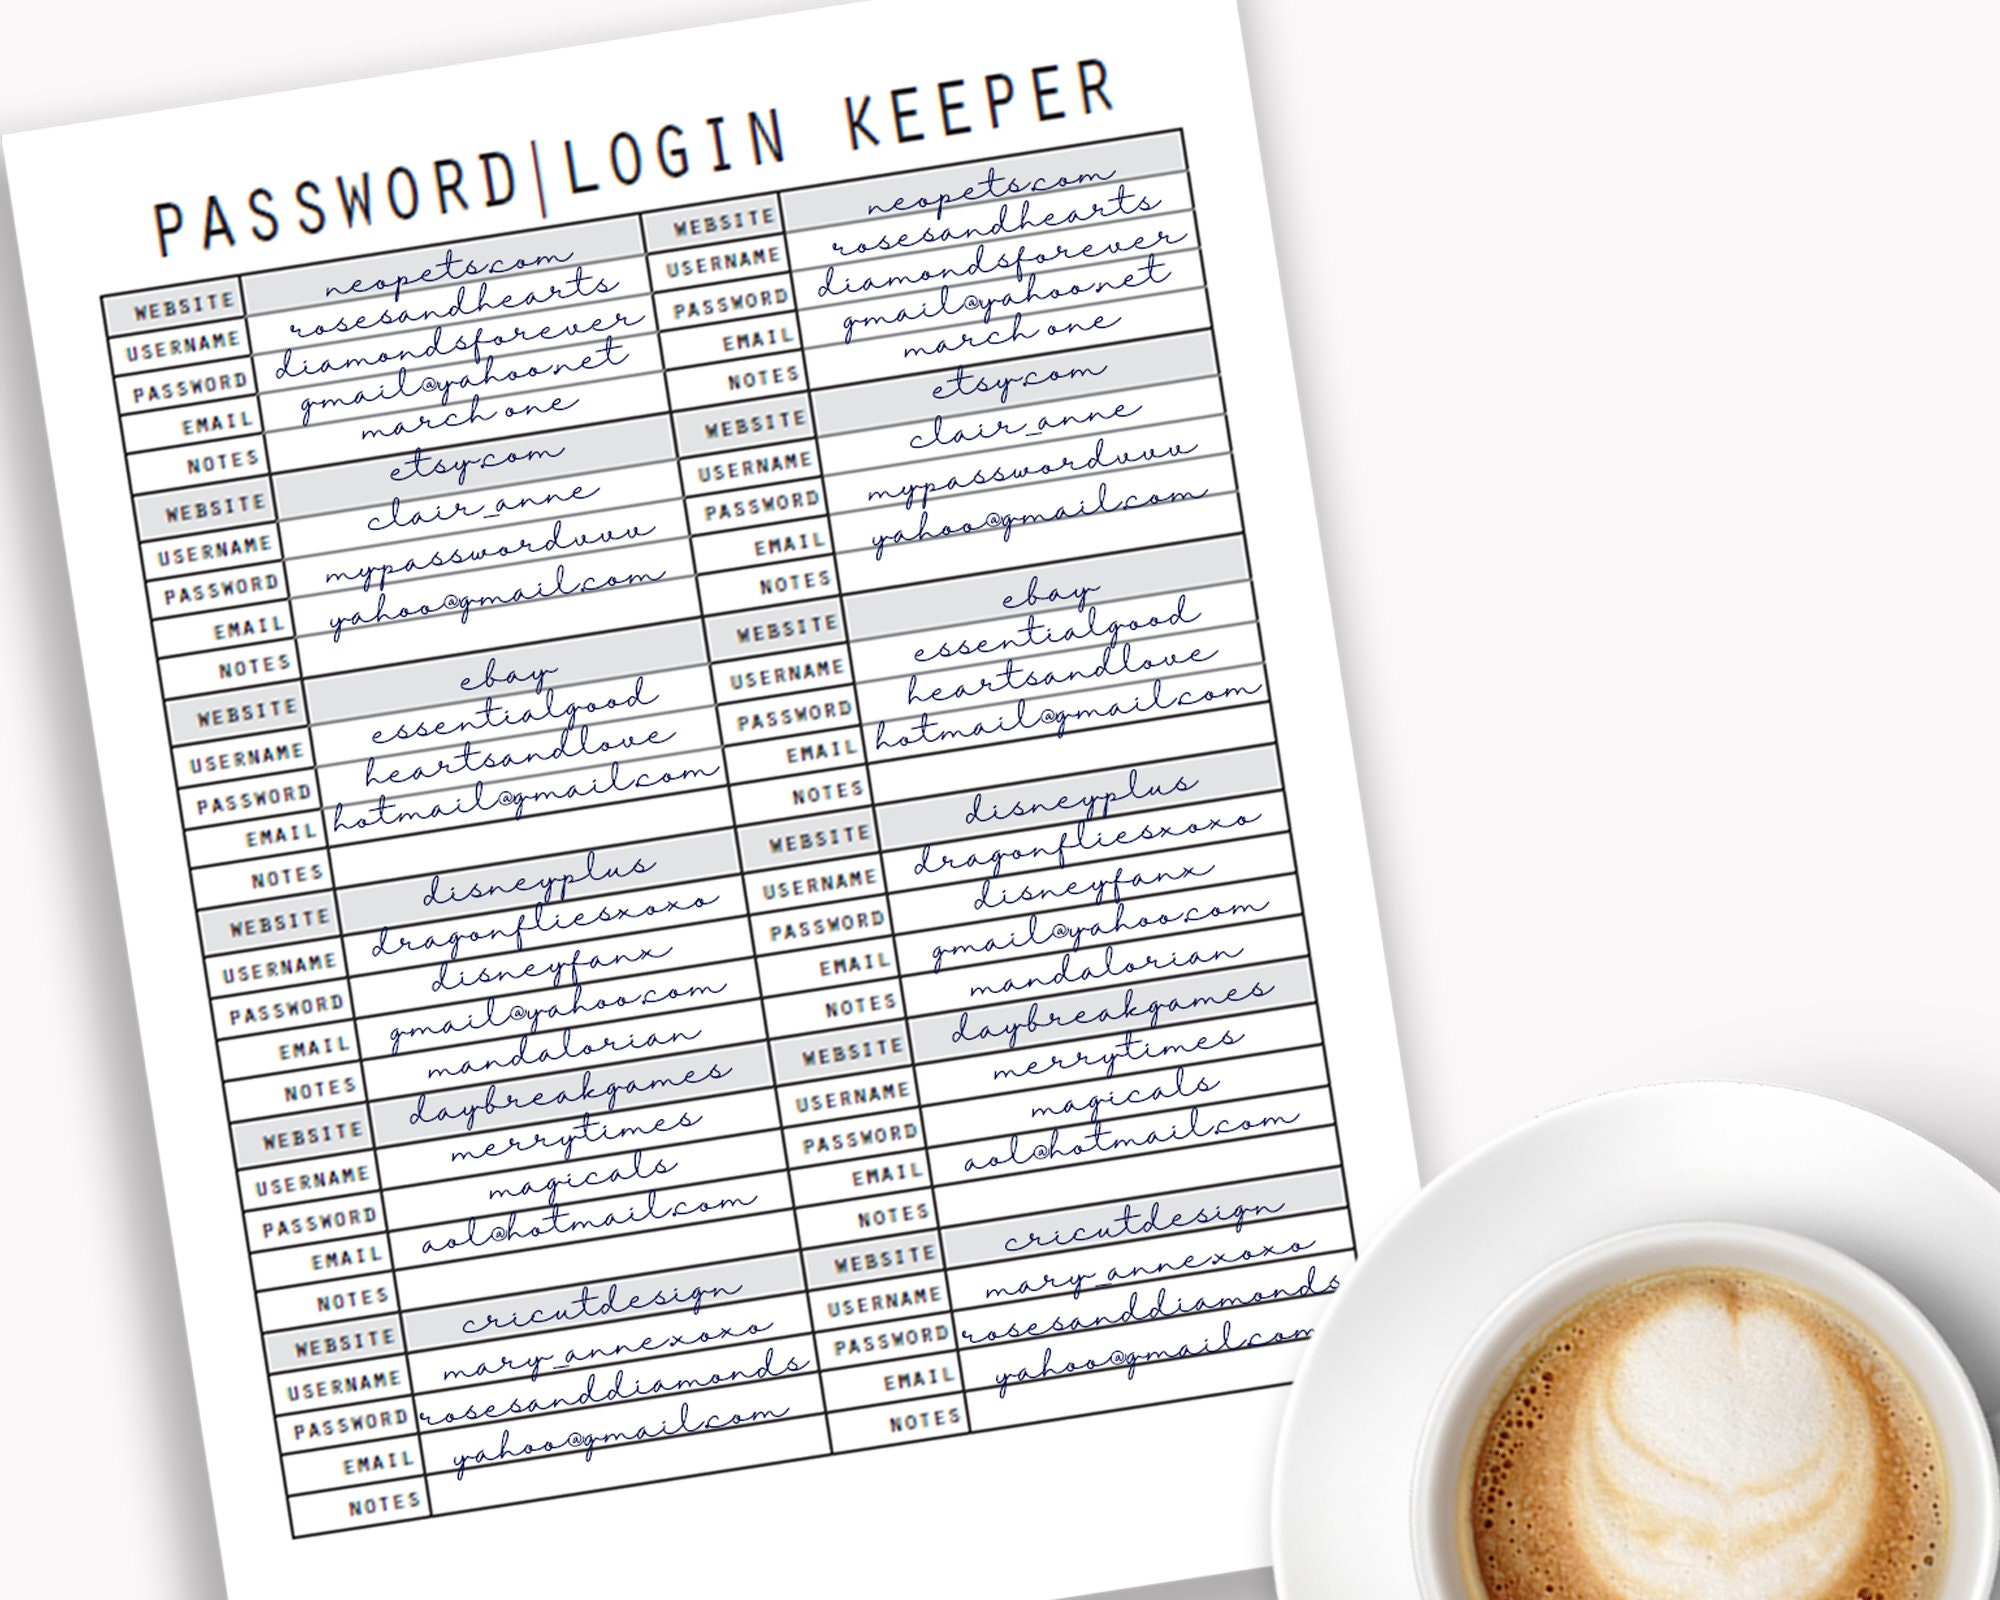 PASSWORD|LOGIN KEEPER
WEBSITE neopets.com
USERNAME rosesandhearts
PASSWORD diamondsforever
EMAIL gmail@yahoo.net
NOTES march one
WEBSITE etsy.com
USERNAME clair_anne
PASSWORD mypasswordvvv
EMAIL yahoo@gmail.com
NOTES
WEBSITE ebay
USERNAME essentialgood
PASSWORD heartsandlove
EMAIL hotmail@gmail.com
NOTES
WEBSITE disneyplus
USERNAME dragonfliesxoxo
PASSWORD disneyfanx
EMAIL gmail@yahoo.com
NOTES mandalorian
WEBSITE daybreakgames
USERNAME merrytimes
PASSWORD magicals
EMAIL aol@hotmail.com
NOTES
WEBSITE cricutdesign
USERNAME mary_annexoxo
PASSWORD rosesanddiamonds
EMAIL yahoo@gmail.com
NOTES
WEBSITE neopets.com
USERNAME rosesandhearts
PASSWORD diamondsforever
EMAIL gmail@yahoo.net
NOTES march one
WEBSITE etsy.com
USERNAME clair_anne
PASSWORD mypasswordvvv
EMAIL yahoo@gmail.com
NOTES
WEBSITE ebay
USERNAME essentialgood
PASSWORD heartsandlove
EMAIL hotmail@gmail.com
NOTES
WEBSITE disneyplus
USERNAME dragonfliesxoxo
PASSWORD disneyfanx
EMAIL gmail@yahoo.com
NOTES mandalorian
WEBSITE daybreakgames
USERNAME merrytimes
PASSWORD magicals
EMAIL aol@hotmail.com
NOTES
WEBSITE cricutdesign
USERNAME mary_annexoxo
PASSWORD rosesanddiamonds
EMAIL yahoo@gmail.com
NOTES